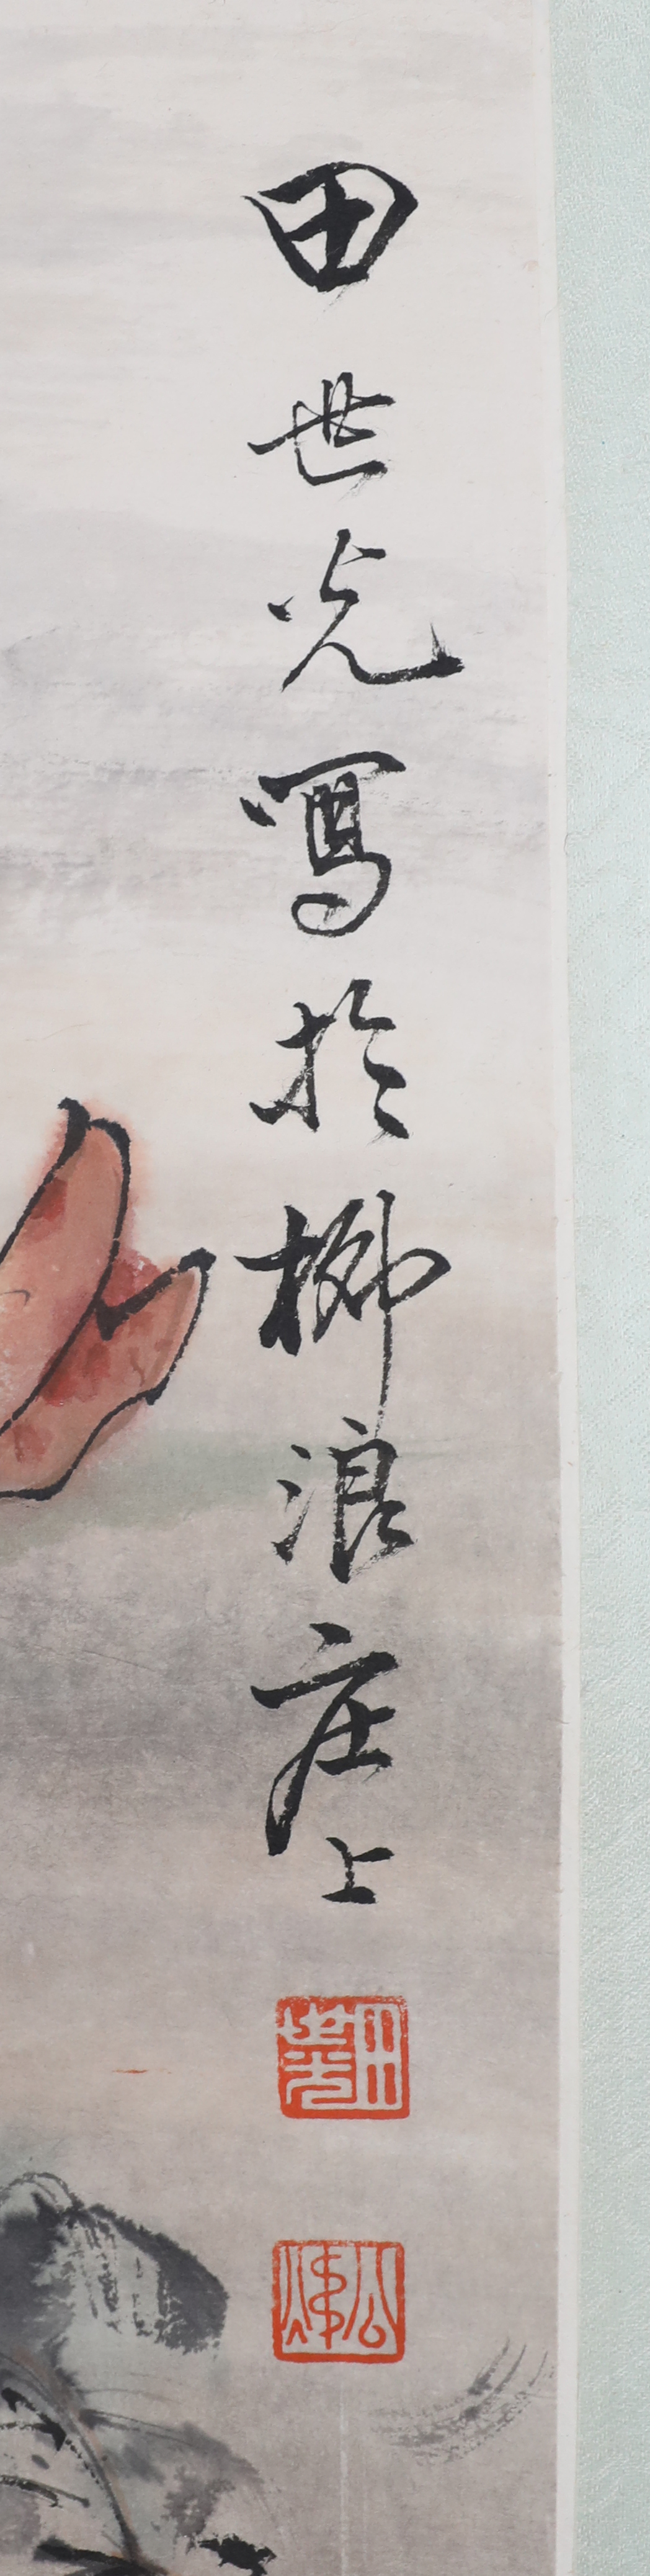 田世光寫於柳浪庄上
田世光
公煒